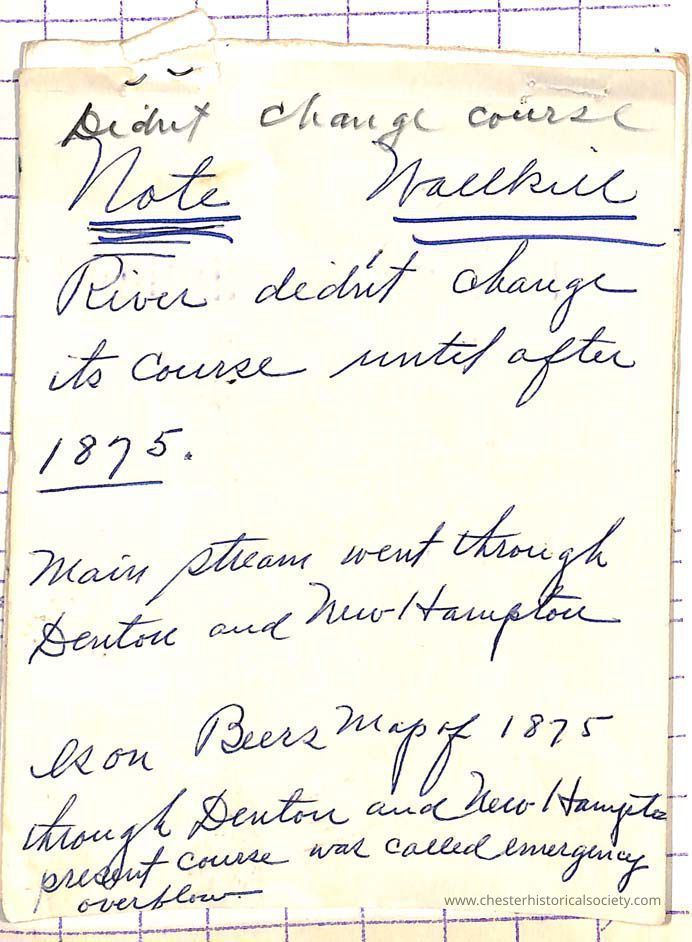 Didn't change course
Note Wallkill
River didn't change
its course until after
1875.
Main stream went through
Denton and New Hampton
Is on Beers Map of 1875
through Denton and New Hampton
present course was called emergency
overflow
www.chesterhistoricalsociety.com